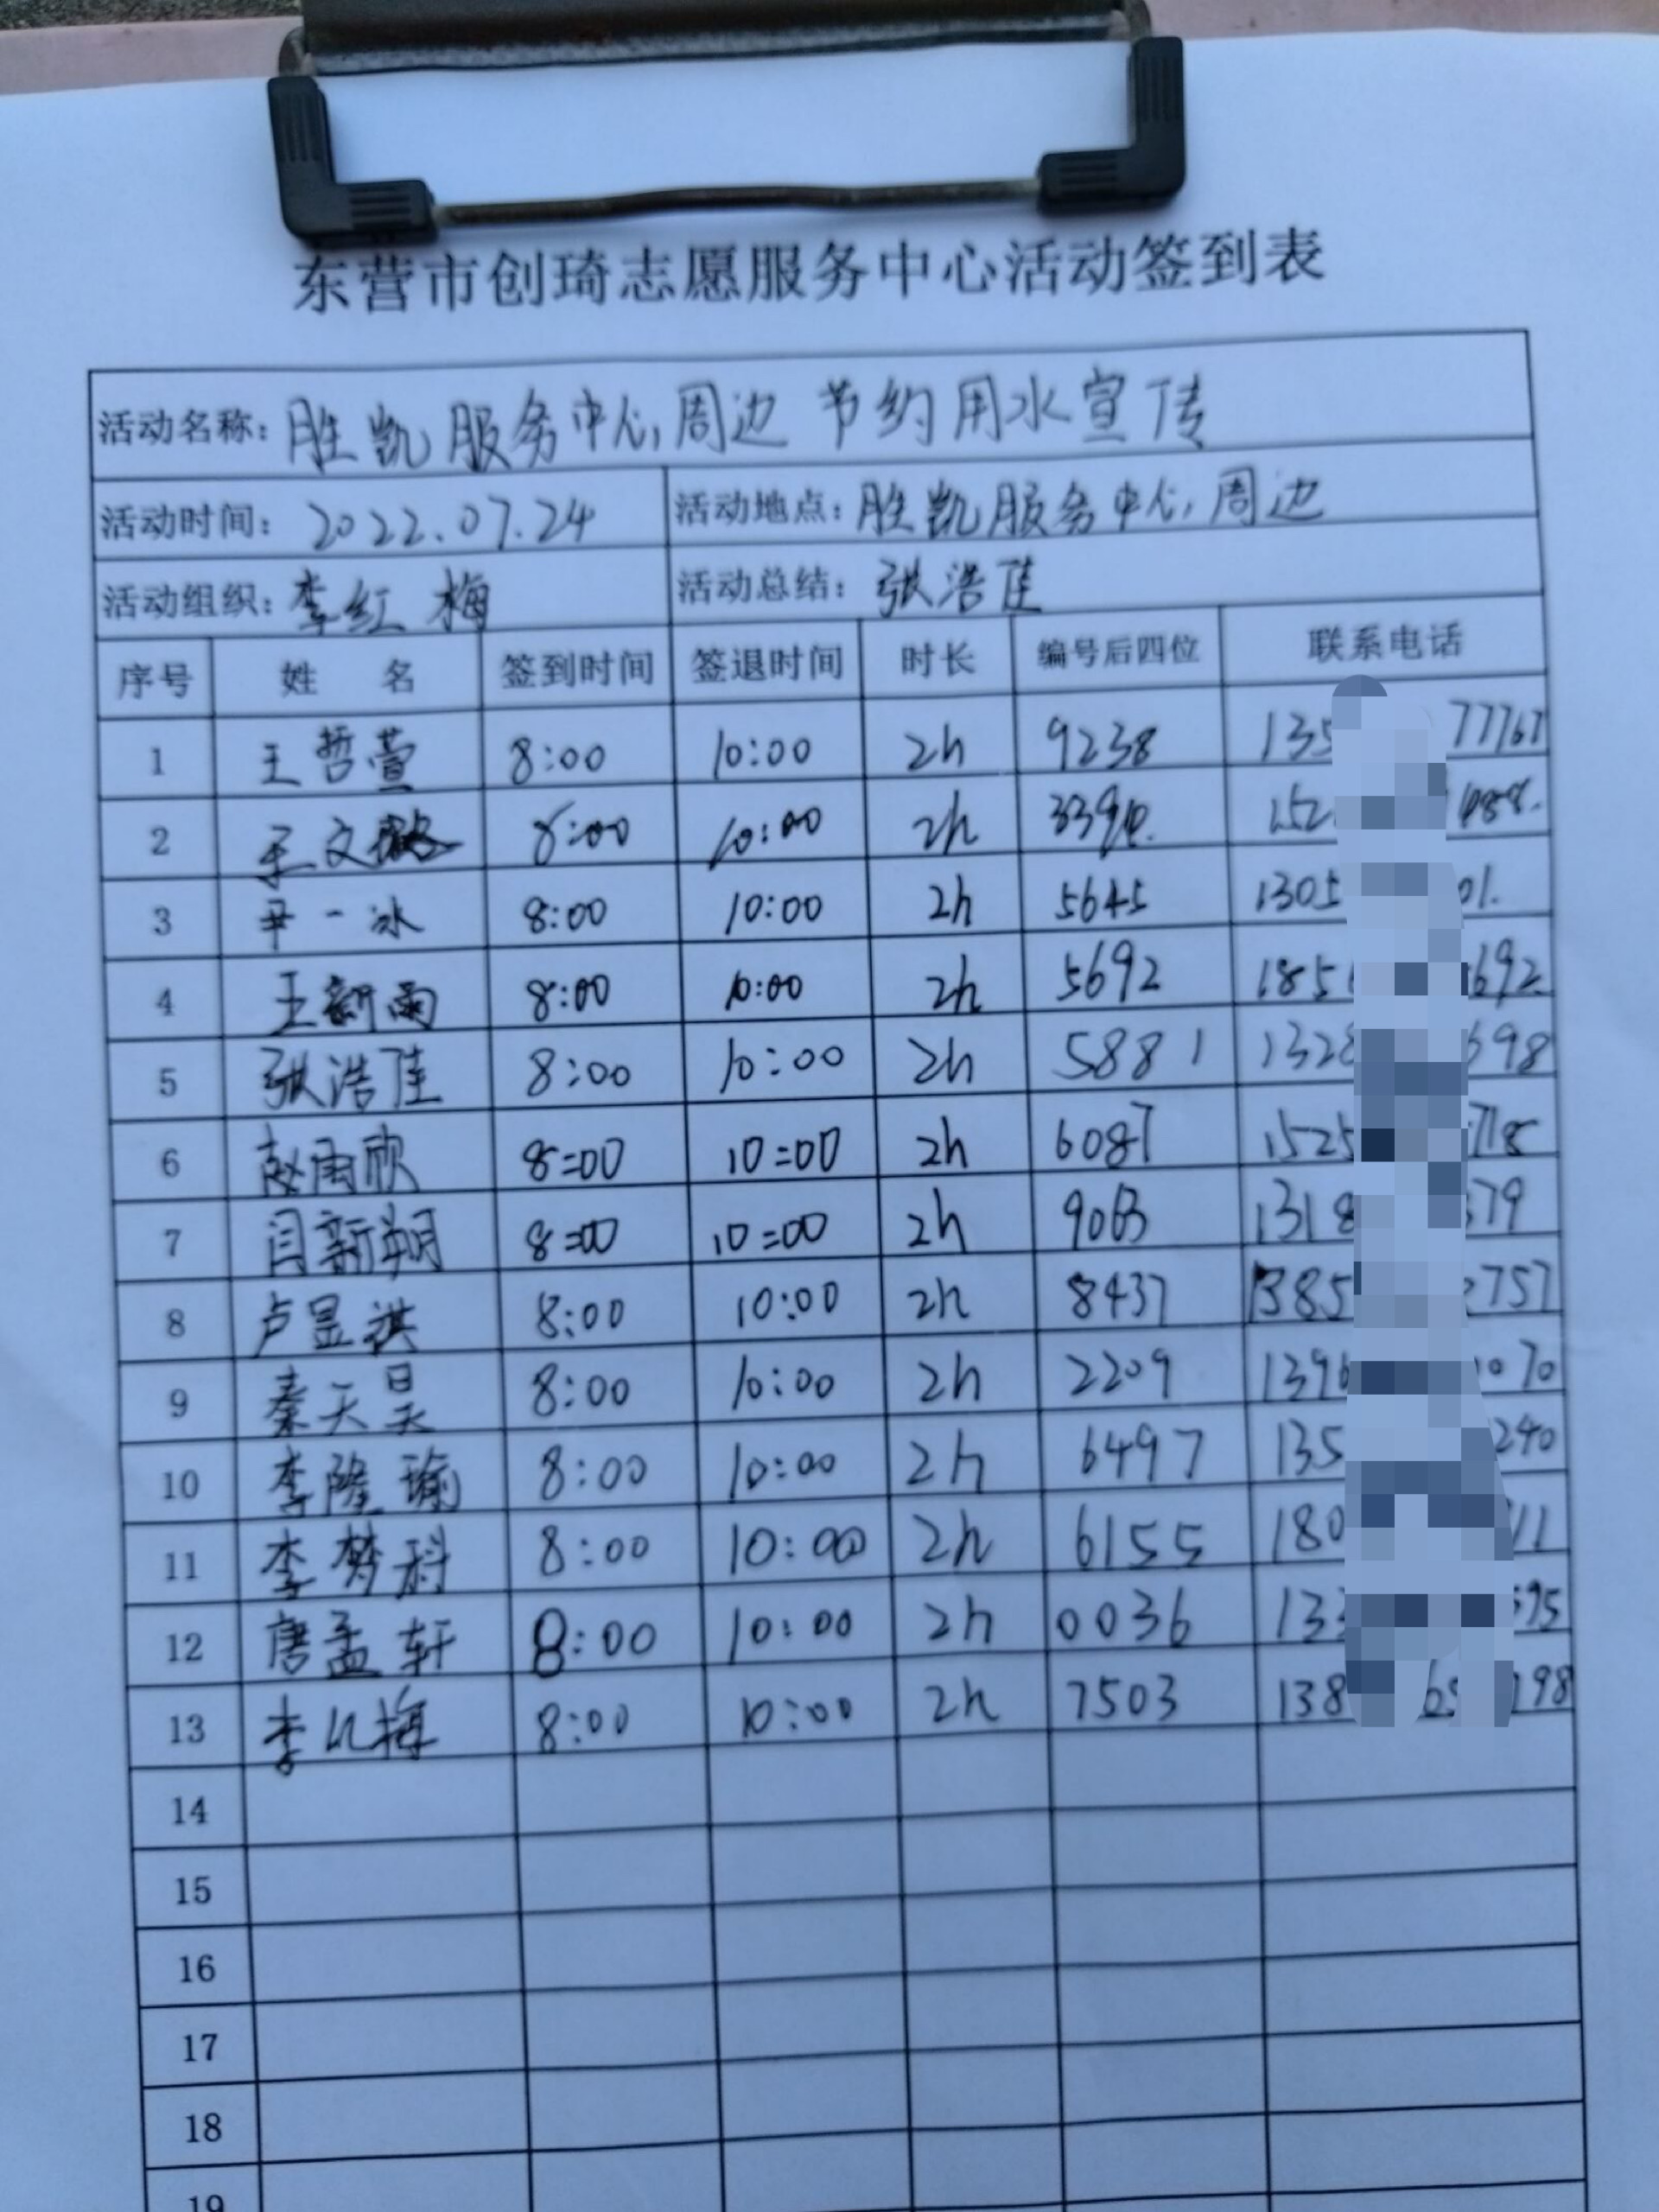 东营市创琦志愿服务中心活动签到表
活动名称: 胜凯服务中心周边 节约用水宣传
活动时间: 2022.07.24 活动地点: 胜凯服务中心周边
活动组织: 李红梅 活动总结: 张浩佳
序号 姓 名 签到时间 签退时间 时长 编号后四位 联系电话
1 王哲萱 8:00 10:00 2h 9238 135 77767
2 王文 8:00 10:00 2h 152
3 尹一冰 8:00 10:00 2h 5645 1305 01.
4 王新雨 8:00 10:00 2h 5692 185 692
5 张浩佳 8:00 10:00 2h 5881 1328 698
6 赵雨欣 8:00 10:00 2h 6087 1525 718
7 闫新翔 8:00 10:00 2h 9063 1318 79
8 卢昱祺 8:00 10:00 2h 8437 1385 757
9 秦天昊 8:00 10:00 2h 2209 1396 070
10 李隆瑜 8:00 10:00 2h 6497 135 240
11 李梦科 8:00 10:00 2h 6155 180 11
12 唐孟轩 8:00 10:00 2h 0036 133 595
13 李红梅 8:00 10:00 2h 7503 138 198
14
15
16
17
18
19